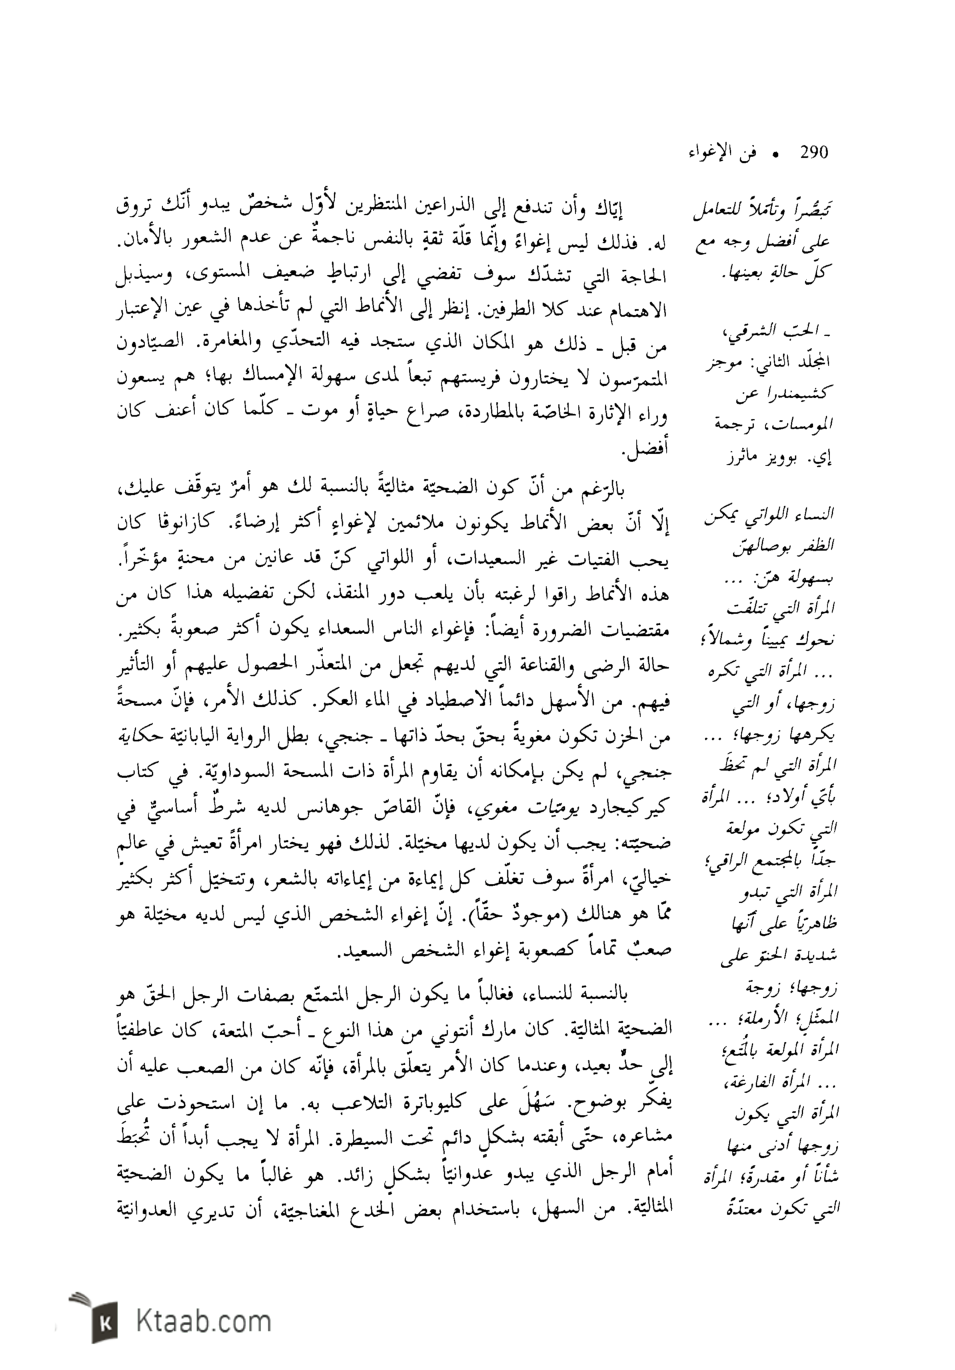 290 • فن الإغواء
إيّاك وأن تندفع إلى الذراعين المنتظرين لأوّل شخصٌ يبدو أنّك تروق
له. فذلك ليس إغواءً وإنّما قلّة ثقةٍ بالنفس ناجمةٌ عن عدم الشعور بالأمان.
الحاجة التي تشدّك سوف تفضي إلى ارتباطٍ ضعيف المستوى، وسيذبل
الاهتمام عند كلا الطرفين. إنظر إلى الأنماط التي لم تأخذها في عين الإعتبار
من قبل ـ ذلك هو المكان الذي ستجد فيه التحدّي والمغامرة. الصيّادون
المتمرّسون لا يختارون فريستهم تبعاً لمدى سهولة الإمساك بها؛ هم يسعون
وراء الإثارة الخاصّة بالمطاردة، صراع حياةٍ أو موت ـ كلّما كان أعنف كان
أفضل.
بالرّغم من أنّ كون الضحيّة مثاليّةً بالنسبة لك هو أمرٌ يتوقّف عليك،
إلّا أنّ بعض الأنماط يكونون ملائمين لإغواءٍ أكثر إرضاءً. كازانوڤا كان
يحب الفتيات غير السعيدات، أو اللواتي كنّ قد عانين من محنةٍ مؤخّراً.
هذه الأنماط راقوا لرغبته بأن يلعب دور المنقذ، لكن تفضيله هذا كان من
مقتضيات الضرورة أيضاً: فإغواء الناس السعداء يكون أكثر صعوبةً بكثير.
حالة الرضى والقناعة التي لديهم تجعل من المتعذّر الحصول عليهم أو التأثير
فيهم. من الأسهل دائماً الاصطياد في الماء العكر. كذلك الأمر، فإنّ مسحةً
من الحزن تكون مغويةً بحقّ بحدّ ذاتها ـ جنجي، بطل الرواية اليابانيّة حكاية
جنجي، لم يكن بإمكانه أن يقاوم المرأة ذات المسحة السوداويّة. في كتاب
كيركيجارد يوميّات مغوي، فإنّ القاصّ جوهانس لديه شرطٌ أساسيٌّ في
ضحيّته: يجب أن يكون لديها مخيّلة. لذلك فهو يختار امرأةً تعيش في عالمٍ
خياليّ، امرأةً سوف تغلّف كل إيماءة من إيماءاته بالشعر، وتتخيّل أكثر بكثير
ممّا هو هنالك (موجودٌ حقّاً). إنّ إغواء الشخص الذي ليس لديه مخيّلة هو
صعبٌ تماماً كصعوبة إغواء الشخص السعيد.
بالنسبة للنساء، فغالباً ما يكون الرجل المتمتّع بصفات الرجل الحقّ هو
الضحيّة المثاليّة. كان مارك أنتوني من هذا النوع ـ أحبّ المتعة، كان عاطفيّاً
إلى حدٍّ بعيد، وعندما كان الأمر يتعلّق بالمرأة، فإنّه كان من الصعب عليه أن
يفكّر بوضوح. سَهُلَ على كليوباترة التلاعب به. ما إن استحوذت على
مشاعره، حتّى أبقته بشكلٍ دائم تحت السيطرة. المرأة لا يجب أبداً أن تُحبَطَ
أمام الرجل الذي يبدو عدوانيّاً بشكلٍ زائد. هو غالباً ما يكون الضحيّة
المثاليّة. من السهل، باستخدام بعض الخدع المغناجيّة، أن تديري العدوانيّة
تَبَصُّراً وتأمّلاً للتعامل
على أفضل وجه مع
كلّ حالةٍ بعينها.
ـ الحبّ الشرقي،
المجلّد الثاني: موجز
كشيمندرا عن
المومسات، ترجمة
إي. بوويز ماثرز
النساء اللواتي يمكن
الظفر بوصالهنّ
بسهولة هنّ: ...
المرأة التي تتلفّت
نحوك يميناً وشمالاً؛
... المرأة التي تكره
زوجها، أو التي
يكرهها زوجها؛ ...
المرأة التي لم تحظَ
بأيّ أولاد؛ ... المرأة
التي تكون مولعة
جدّاً بالمجتمع الراقي؛
المرأة التي تبدو
ظاهريّاً على أنّها
شديدة الحنوّ على
زوجها؛ زوجة
الممثّل؛ الأرملة؛ ...
المرأة المولعة بالمُتَع؛
... المرأة الفارغة،
المرأة التي يكون
زوجها أدنى منها
شأناً أو مقدرةً؛ المرأة
التي تكون معتدّةً
Ktaab.com